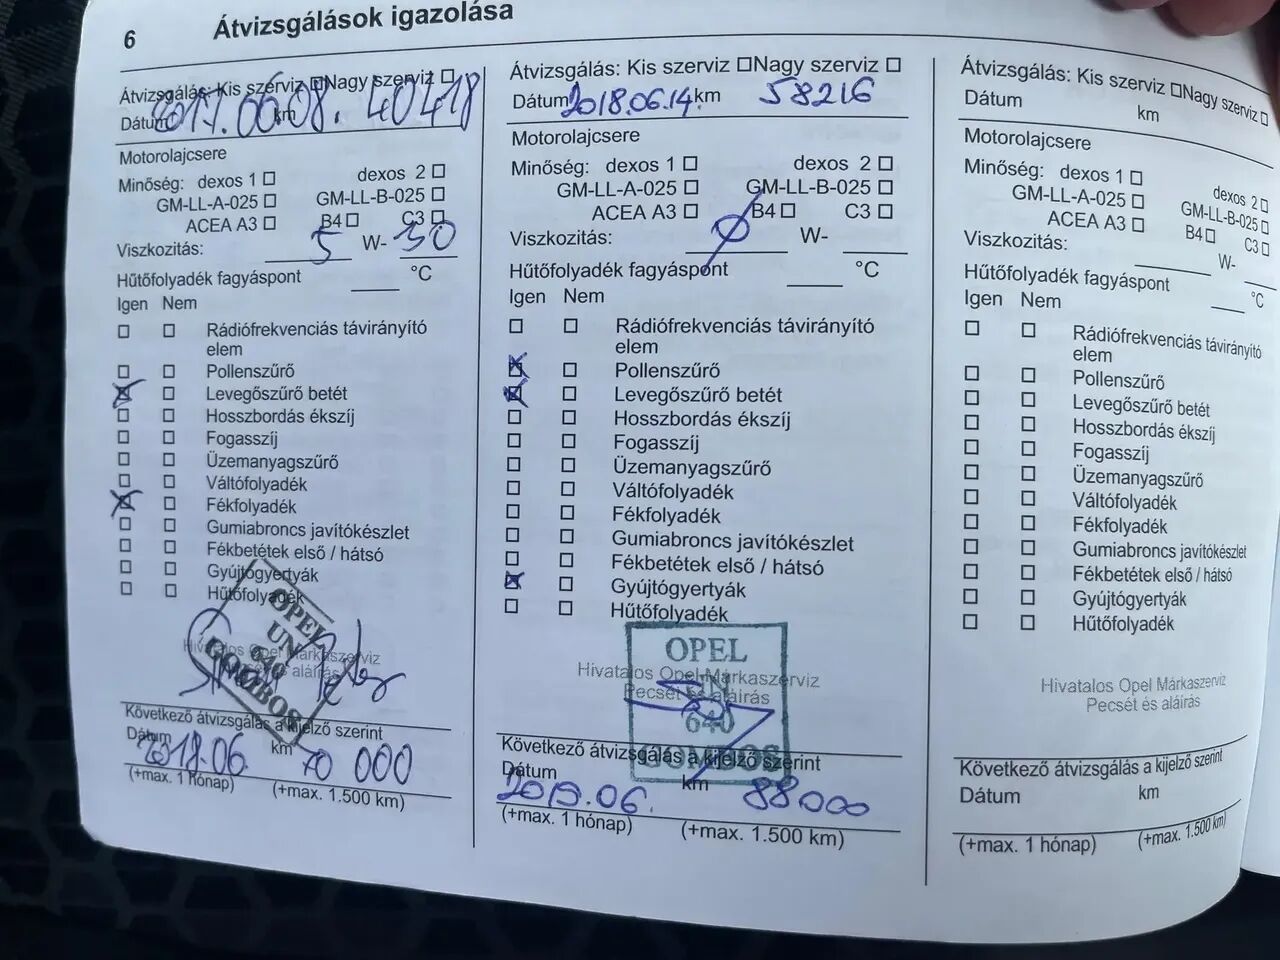 6 Átvizsgálások igazolása
Átvizsgálás: Kis szerviz □ Nagy szerviz □
Dátum 2017.06.08. km 40418
Motorolajcsere
Minőség: dexos 1 □ dexos 2 □
GM-LL-A-025 □ GM-LL-B-025 □
ACEA A3 □ B4 □ C3 □
Viszkozitás: 5 W- 30
Hűtőfolyadék fagyáspont ____ °C
Igen Nem
Rádiófrekvenciás távirányító
elem
Pollenszűrő
Levegőszűrő betét
Hosszbordás ékszíj
Fogasszíj
Üzemanyagszűrő
Váltófolyadék
Fékfolyadék
Gumiabroncs javítókészlet
Fékbetétek első / hátsó
Gyújtógyertyák
Hűtőfolyadék
OPEL
UN
640
GOMBOS
Hivatalos Opel Márkaszerviz
Pecsét és aláírás
Következő átvizsgálás a kijelző szerint
Dátum 2018.06 km 70 000
(+max. 1 hónap) (+max. 1.500 km)
Átvizsgálás: Kis szerviz □ Nagy szerviz □
Dátum 2018.06.14. km 58216
Motorolajcsere
Minőség: dexos 1 □ dexos 2 □
GM-LL-A-025 □ GM-LL-B-025 □
ACEA A3 □ B4 □ C3 □
Viszkozitás: W-
Hűtőfolyadék fagyáspont ____ °C
Igen Nem
Rádiófrekvenciás távirányító
elem
Pollenszűrő
Levegőszűrő betét
Hosszbordás ékszíj
Fogasszíj
Üzemanyagszűrő
Váltófolyadék
Fékfolyadék
Gumiabroncs javítókészlet
Fékbetétek első / hátsó
Gyújtógyertyák
Hűtőfolyadék
OPEL
UN
640
GOMBOS
Hivatalos Opel Márkaszerviz
Pecsét és aláírás
Következő átvizsgálás a kijelző szerint
Dátum 2019.06. km 88000
(+max. 1 hónap) (+max. 1.500 km)
Átvizsgálás: Kis szerviz □ Nagy szerviz □
Dátum km
Motorolajcsere
Minőség: dexos 1 □ dexos 2 □
GM-LL-A-025 □ GM-LL-B-025 □
ACEA A3 □ B4 □ C3 □
Viszkozitás: W-
Hűtőfolyadék fagyáspont ____ °C
Igen Nem
Rádiófrekvenciás távirányító
elem
Pollenszűrő
Levegőszűrő betét
Hosszbordás ékszíj
Fogasszíj
Üzemanyagszűrő
Váltófolyadék
Fékfolyadék
Gumiabroncs javítókészlet
Fékbetétek első / hátsó
Gyújtógyertyák
Hűtőfolyadék
Hivatalos Opel Márkaszerviz
Pecsét és aláírás
Következő átvizsgálás a kijelző szerint
Dátum km
(+max. 1 hónap) (+max. 1.500 km)